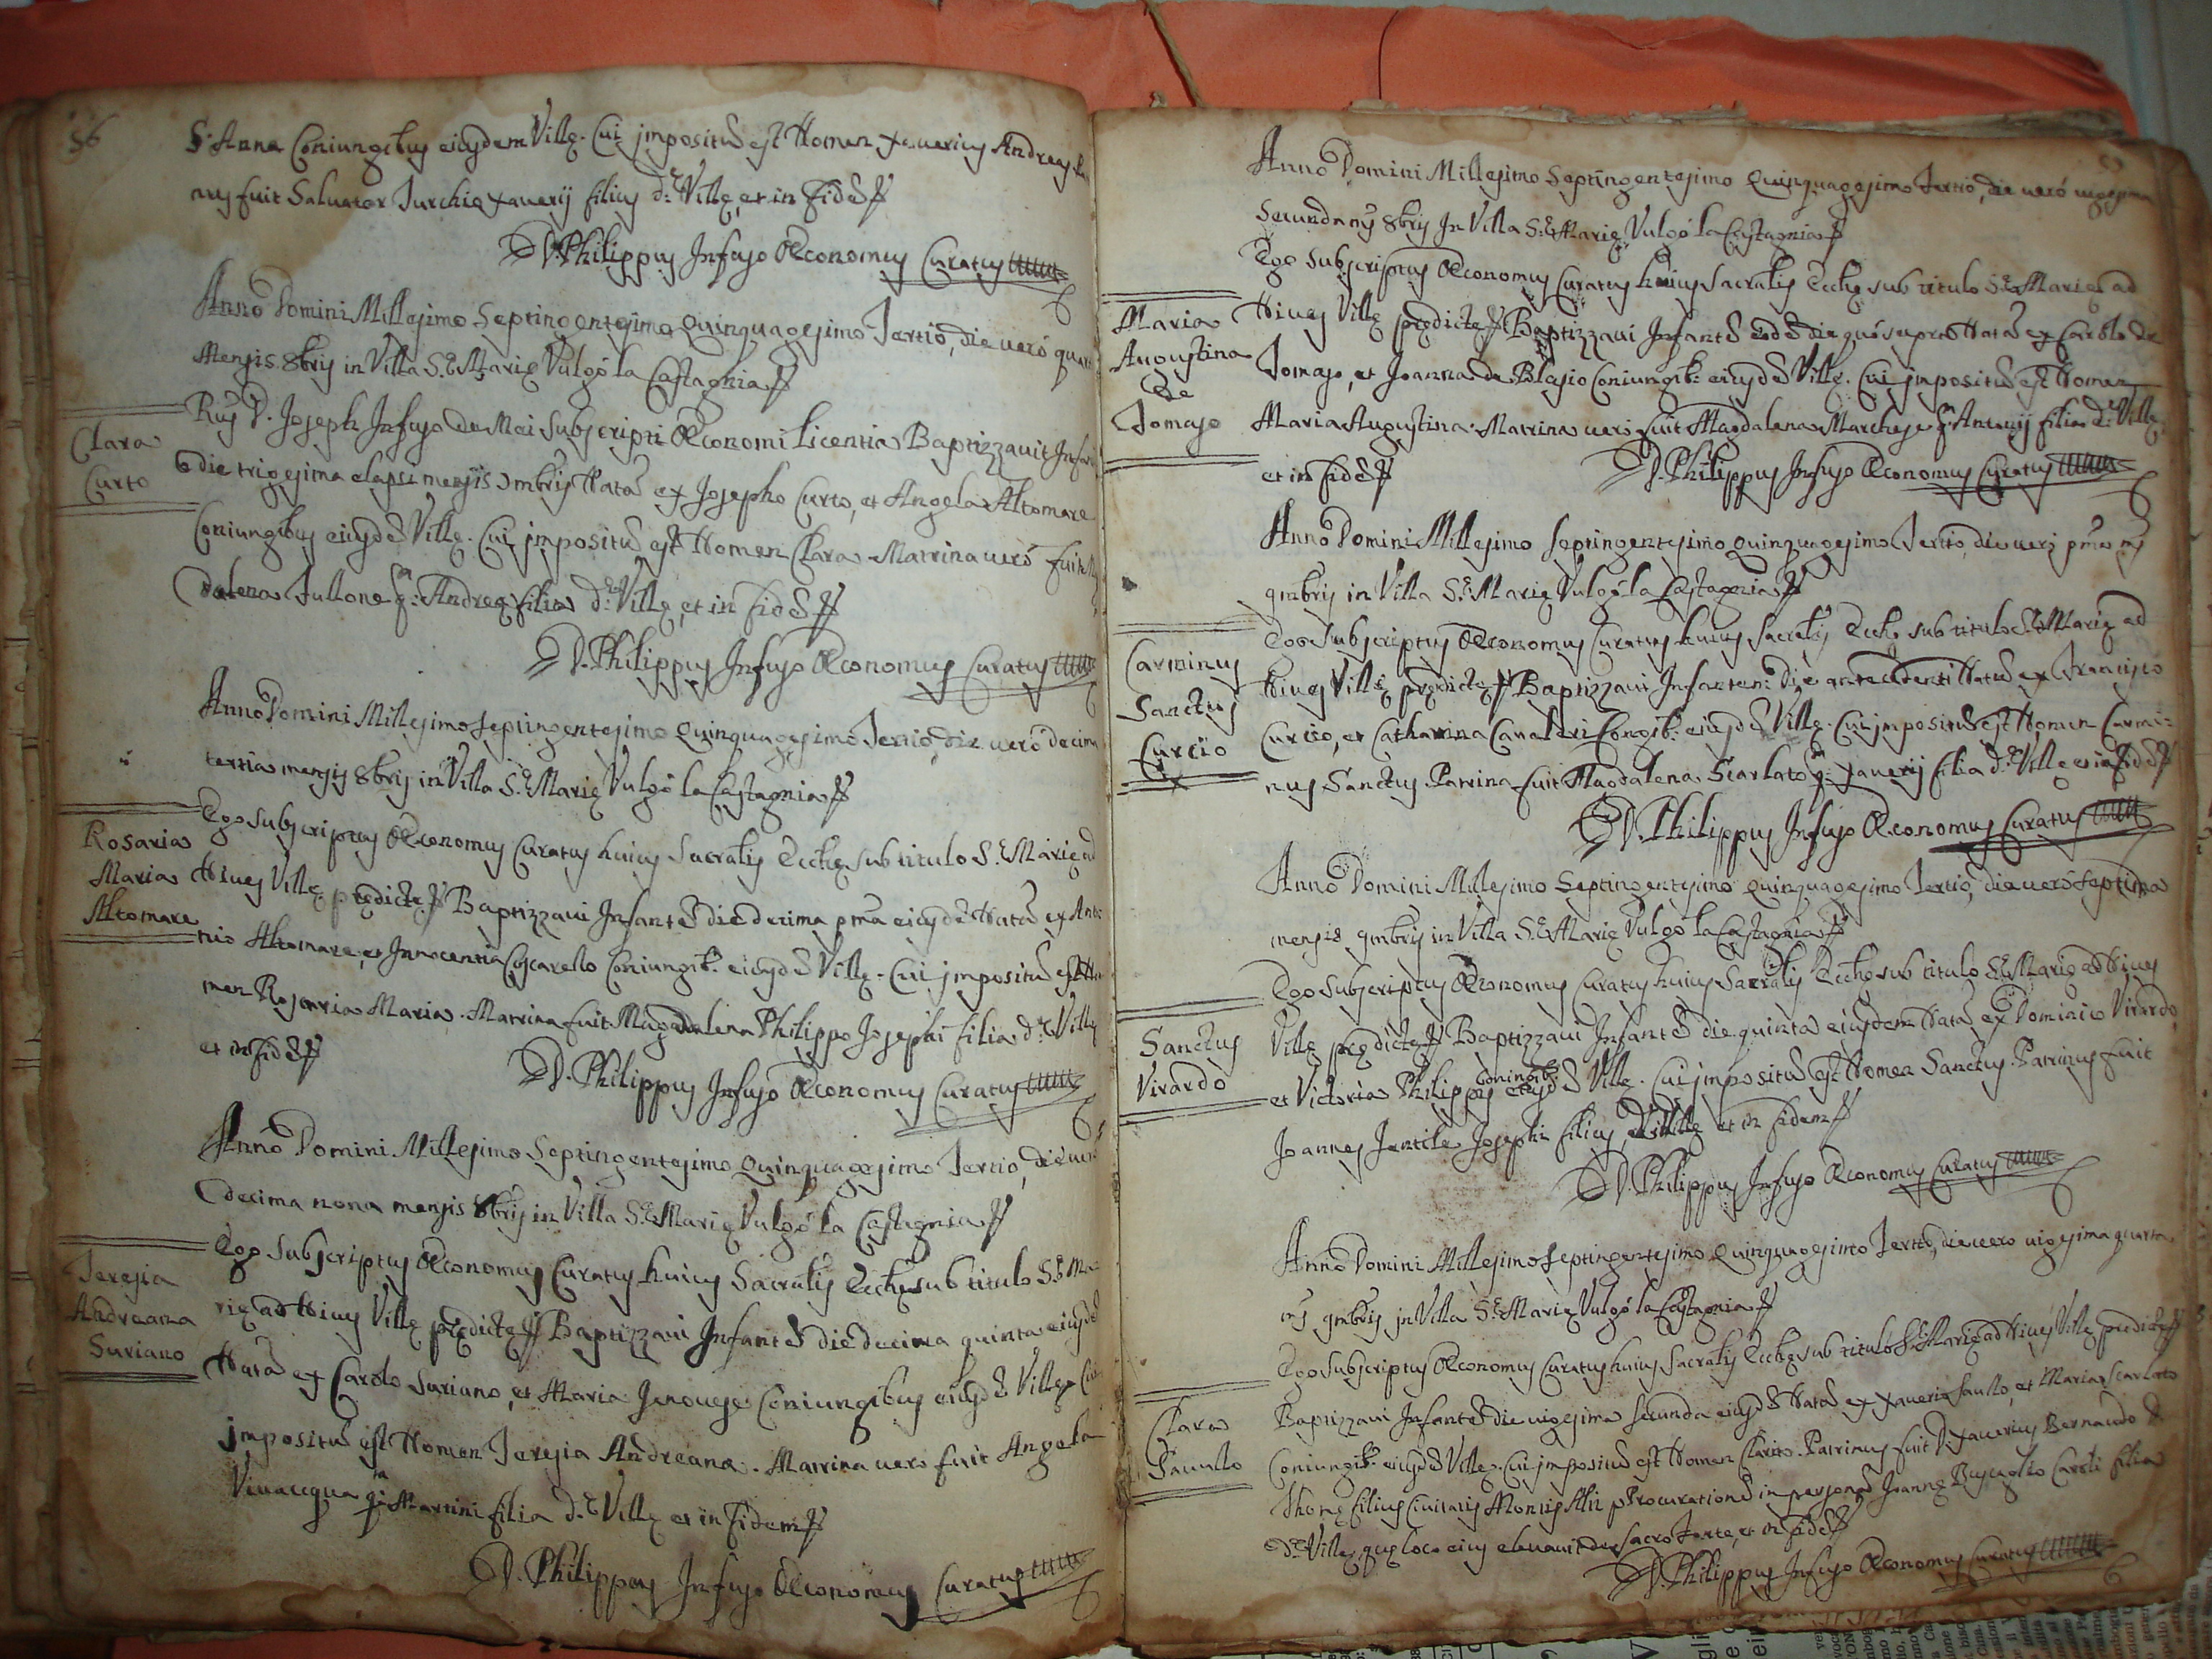 56
S. Anna Coniungibus eiusdem Ville. Cui impositũ est Nomen Xaverius Andreas
nus fuit Salvator Turchia Xaverij filius d.e Ville, et in fidẽ
D. Philippus Infuso Œconomus Curatus
Anno Domini Millesimo Septingentesimo Quinquagesimo Tertio, die verò
Mensis 8bris in Villa S.e Marie Vulgò la Castagnia
Clara
Curto
D. Joseph Infuso de Mei Subscripti Œconomi licentia Baptizzavit
die trigesima elapsi mensis Natã ex Josepho Curto, et Angela Altomare
Coniungibus eiusdẽ Ville. Cui impositũ est Nomen Clara. Matrina verò fuit
dalena Fullone q. Andree filia d.e Ville, et in fidẽ
D. Philippus Infuso Œconomus Curatus
Anno Domini Millesimo Septingentesimo Quinquagesimo Tertio, die verò decima
tertia mensis 8bris in Villa S.e Marie Vulgò la Castagnia
Rosaria
Maria
Altomare
Ego subscriptus Œconomus Curatus huius Sacralis Ecclẹ sub titulo S.e Marie ad
Nives Ville predicte Baptizzavi Infantẽ die decima pma eiusdẽ Natã ex Anto
nio Altomare, et Innocentia Coscarello Coniungib. eiusdẽ Ville. Cui impositũ est No
men Rosaria Maria. Matrina fuit Magdalena Philippo Josephi filia d.e Ville
et in fidẽ
D. Philippus Infuso Œconomus Curatus
Anno Domini Millesimo Septingentesimo Quinquagesimo Tertio, die verò
decima nona mensis 8bris in Villa S.e Marie Vulgò la Castagnia
Teresia
Andreana
Suriano
Ego Subscriptus Œconomus Curatus huius Sacralis Ecclẹ sub titulo S.e Ma
rie ad Nives Ville predicte Baptizzavi Infantẽ die decima quinta eiusdẽ
Natã ex Carolo Suriano, et Maria Genovese Coniungibus eiusdẽ Ville Cui
impositũ est Nomen Teresia Andreana. Matrina vero fuit Angela
Vivacqua q. Martini filia d.e Ville et in fidem
D. Philippus Infuso Œconomus Curatus
Anno Domini Millesimo Septingentesimo Quinquagesimo Tertio, die verò vigesima
Secunda 8bris In Villa S.e Marie Vulgò la Castagnia
Maria
Augustina
de
Tomaso
Ego subscriptus Œconomus Curatus huius Sacralis Ecclẹ sub titulo S.e Marie ad
Nives Ville predicte Baptizzavi Infantẽ eodẽ die quò supra Natã ex Carolo de
Tomaso, et Joanna de Blasio Coniungib. eiusdẽ Ville. Cui impositũ est Nomen
Maria Augustina. Matrina vero fuit Magdalena Marchese q. Antonij filia d.e Ville,
et in fidẽ
D. Philippus Infuso Œconomus Curatus
Anno Domini Millesimo Septingentesimo Quinquagesimo Tertio, die verò pma
9mbris in Villa S.e Marie Vulgò la Castagnia
Carminus
Sanctus
Curcio
Ego subscriptus Œconomus Curatus huius Sacralis Ecclẹ sub titulo S.e Marie ad
Nives Ville predicte Baptizzavi Infantem die antecedenti Natũ ex Francisco
Curcio, et Catharina Cavaleri Congib. eiusdẽ Ville. Cui impositũ est Nomen Carmi=
nus Sanctus. Patrina fuit Magdalena Scarlato q. Xaverij filia d.e Ville et in fidẽ
D. Philippus Infuso Œconomus Curatus
Anno Domini Millesimo Septingentesimo Quinquagesimo Tertio, die verò septima
mensis 9mbris in Villa S.e Marie Vulgò la Castagnia
Sanctus
Virardo
Ego subscriptus Œconomus Curatus huius Sacralis Ecclẹ sub titulo S.e Marie ad Nives
Ville predicte Baptizzavi Infantẽ die quinta eiusdem Natũ ex Dominico Virardo,
et Victoria Philippo coniungib. eiusdẽ Ville. Cui impositũ est Nomen Sanctus. Patrinus fuit
Joannes Jentile Josephi filius d.e Ville et in fidem
D. Philippus Infuso Œconomus Curatus
Anno Domini Millesimo Septingentesimo Quinquagesimo Tertio, die vero vigesima quarta
9mbris in Villa S.e Marie Vulgò la Castagnia
Clara
Saullo
Ego subscriptus Œconomus Curatus huius Sacralis Ecclẹ sub titulo S.e Marie ad Nives Ville predicte
Baptizzavi Infantẽ die vigesima secunda eiusdẽ Natã ex Xaverio Saullo, et Maria Scarlato
Coniungib. eiusdẽ Ville. Cui impositũ est Nomen Clara. Patrinus fuit D. Xaverius Bernaudo D.
Thome filius Civitatis Montis Alti procurationẽ in personã Joanne Bujaglio Caroli filia
d.e Ville, que loco eius elevavit de sacro fonte, et in fidẽ
D. Philippus Infuso Œconomus Curatus